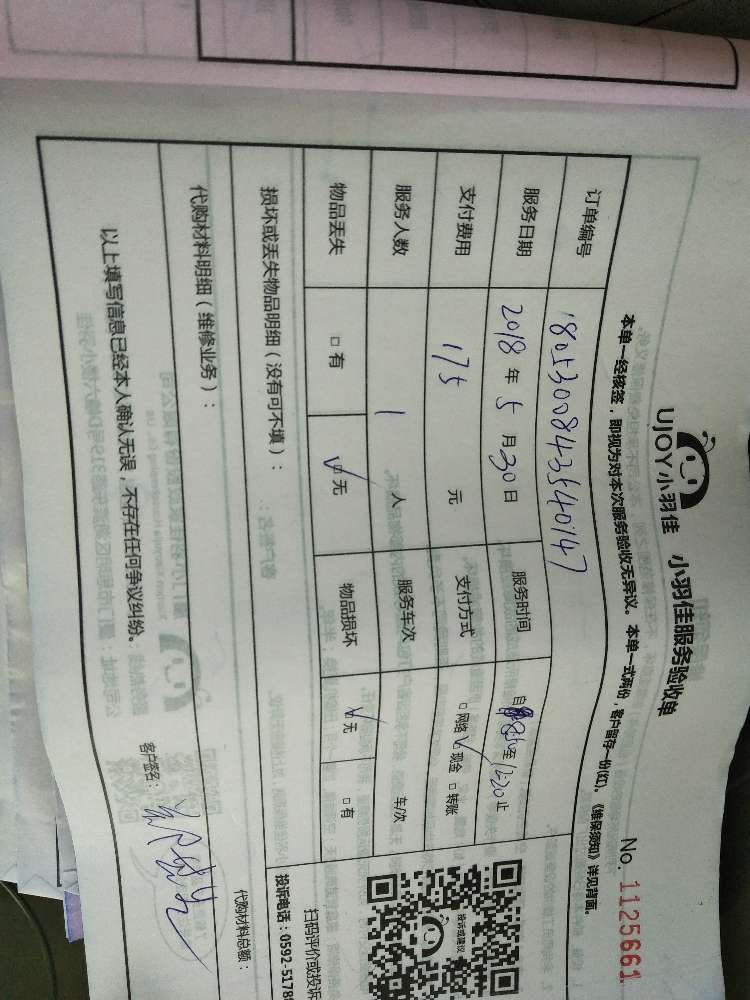 UJOY小羽佳 小羽佳服务验收单 No. 1125661
本单一经核签，即视为对本次服务验收无异议。本单一式两份，客户留存一份(红)。《维保须知》详见背面。
订单编号 1805300843540147
服务日期 2018年5月30日 服务时间 至12:20止
支付费用 175元 支付方式 □网络 ☑现金 □转账
服务人数 1人 服务车次 车/次
物品丢失 □有 ☑无 物品损坏 ☑无 □有
损坏或丢失物品明细（没有可不填）：
代购材料明细（维修业务）：
代购材料总额：
以上填写信息已经本人确认无误，不存在任何争议纠纷。 客户签名：
投诉或建议
扫码评价或投诉
投诉电话：0592-5178